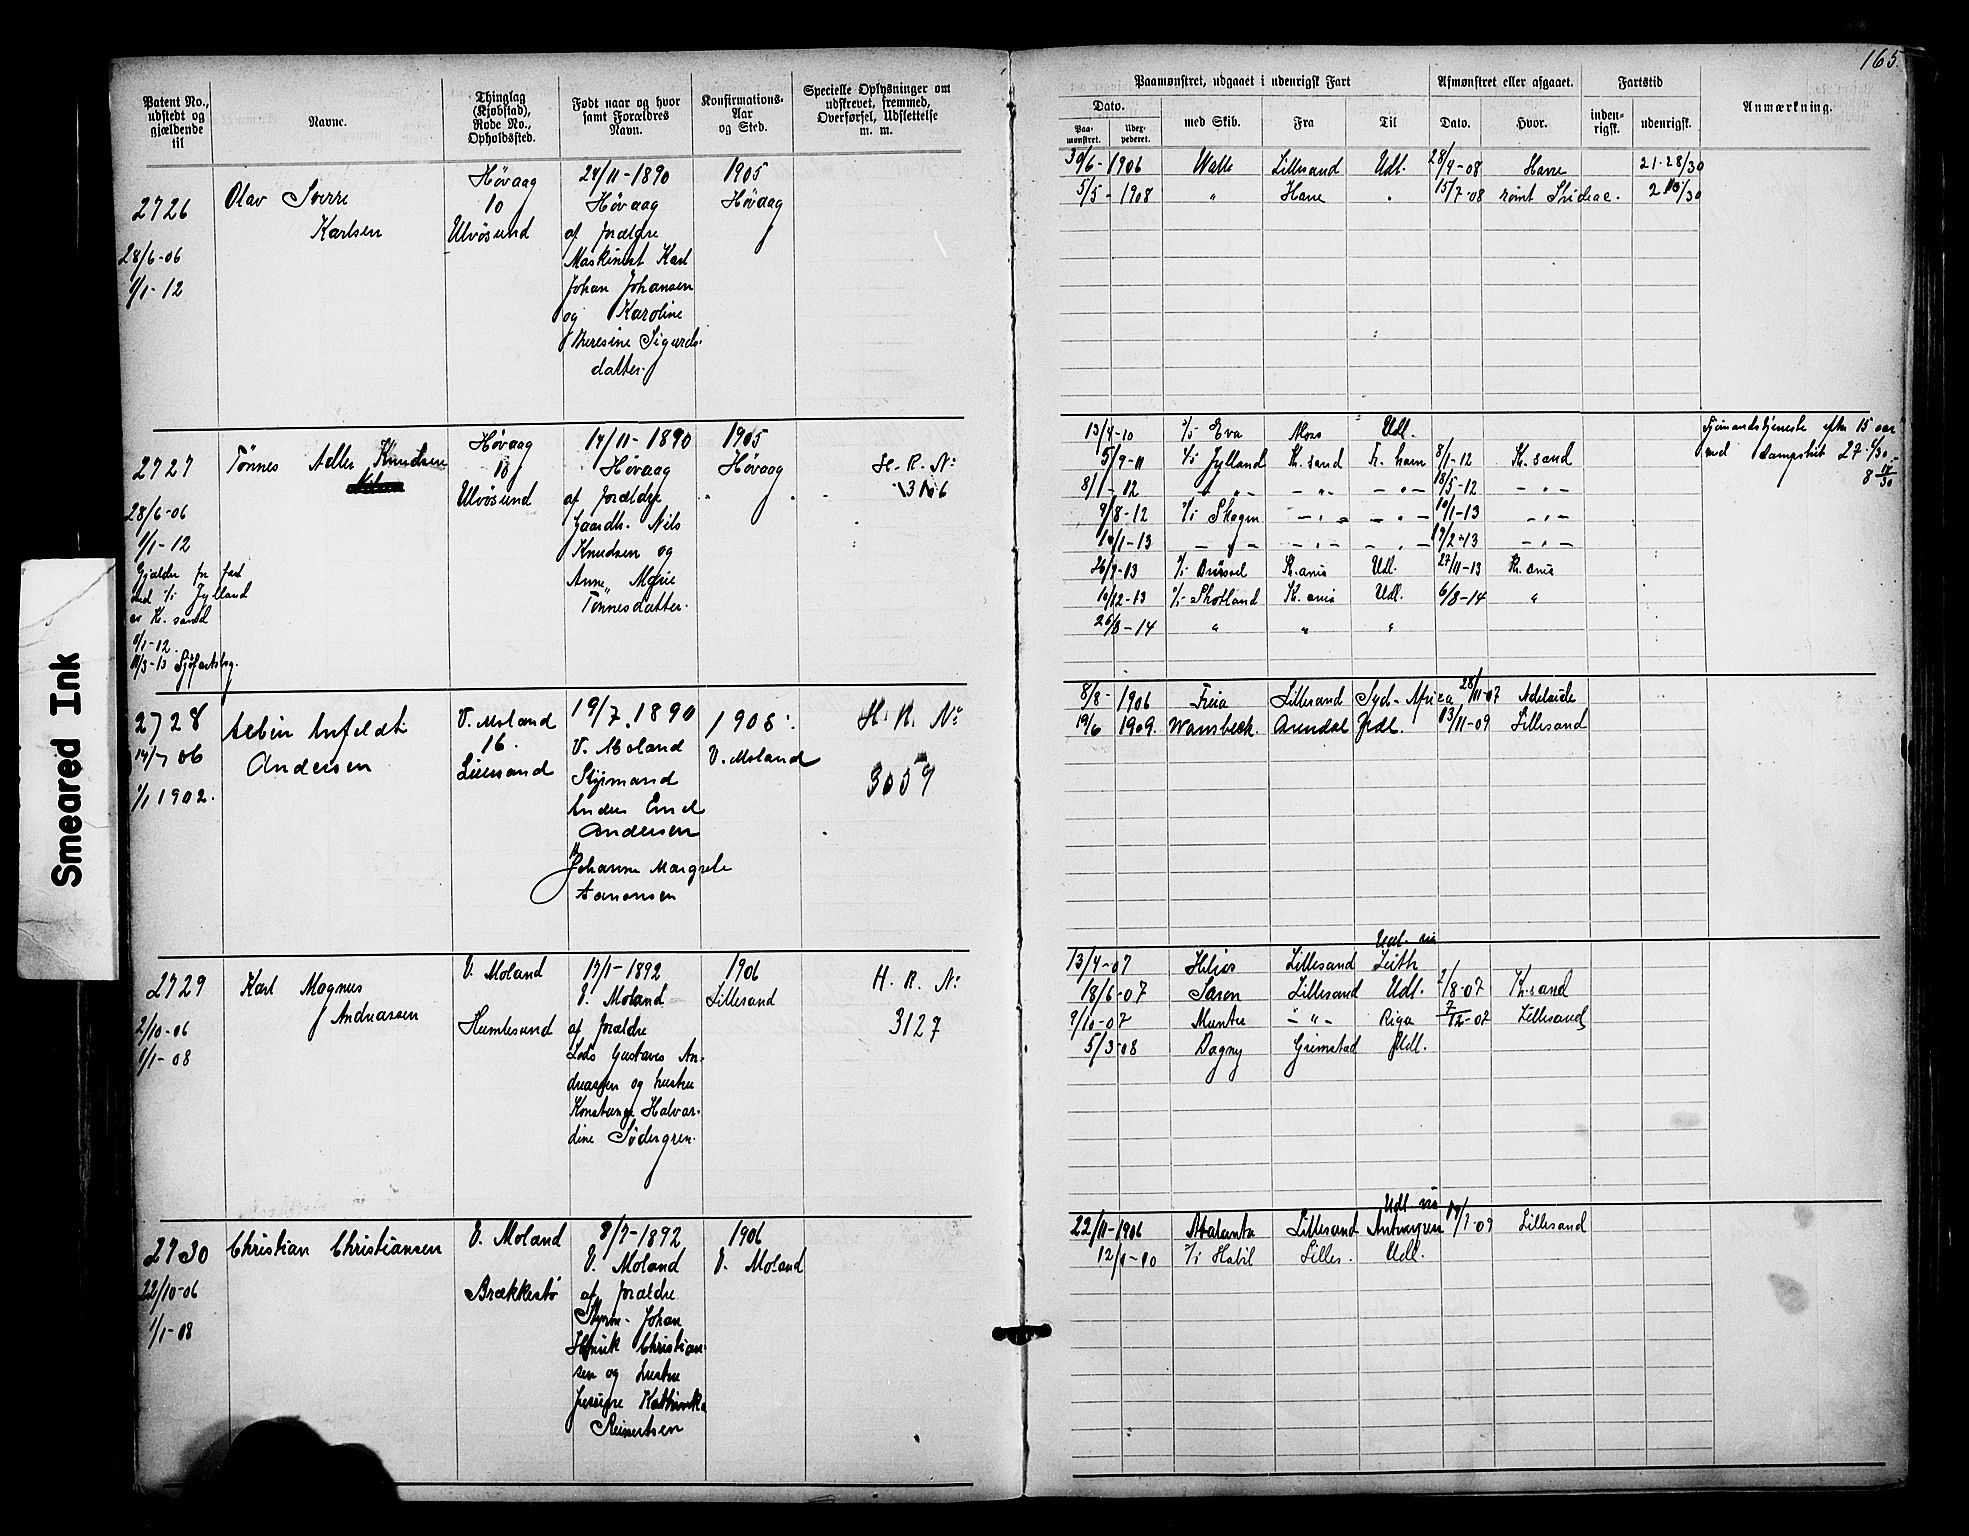 165.
Patent No., udstedt og gjældende til
Navne.
Thinglag (Kjøbstad), Rode No., Opholdssted.
Født naar og hvor samt Forældres Navn.
Konfirmations-Aar og Sted.
Specielle Oplysninger om udskrevet, fremmed, Overførsel, Udslettelse m. m.
Paamønstret, udgaaet i udenrigsk Fart
Afmønstret eller afgaaet.
Fartstid
Anmærkning.
Dato.
Paa-mønstret.
Udex-pederet.
med Skib.
Fra
Til
Dato.
Hvor.
inden-rigsk.
udenrigsk.
2726
28/6-06
1/1-12
Olav Sverre
Karlsen
Høvaag
10
Ulvøsund
24/11-1890
Høvaag
af forældre
Maskinist Karl
Johan Johansen
og Karoline
Theresine Sigurds-
datter.
1905
Høvaag
30/6-1906 Walle Lillesand Udl. 28/4-08 Havre 21-28/30
5/5-1908 " Havre 15/7-08 rømt
2727
28/6-06
1/1-12
Gjælder for fart
med s/s Jylland
av Kr. sand
8/1-12.
Tønnes Adler Knudsen
Høvaag
10
Ulvøsund
14/11-1890
Høvaag
af forældre
Gaardbr. Nils
Knudsen og
Anne Marie
Tønnesdatter.
1905
Høvaag
H. R. No
3106
13/4-10 s/s Eva Moss Udl.
5/9-11 s/s Jylland Kr. sand Fr. havn 8/1-12 Kr. sand
8/1-12 -"- -"- -"- 18/5-12 -"-
9/8-12 s/s Skagen -"- -"- 10/1-13 -"-
10/1-13 -"- -"- -"- 19/2-13 -"-
26/9-13 s/s Kr. ania Udl. 27/11-13 Kr. ania
10/12-13 s/s Skotland Kr. ania Udl. 6/8-14 "
26/8-14 " " "
Sjømandstjeneste efter 15 aar
med dampskib
2728
14/7 06
1/1 1902.
Albin Anfeldt
Andersen
V. Moland
16.
Lillesand
19/7. 1890
V. Moland
Styrmand
Anders Emil
Andersen
Johanne Margrete
Aanonsen
V. Moland
H. R. No
3059
8/8-1906 Freia Lillesand Syd-Africa 28/11-07 Adelaide
19/6 1909. Wansbeck. Arendal Udl. 13/11-09 Lillesand
2729
2/10-06
1/1-08
Karl Magnus
Andreassen
V. Moland
Humlesund
17/1-1892
V. Moland
af forældre
Lods Gustavs An-
dreassen og hustru
Konstanse Halvar-
dine Södergren.
1906
Lillesand
H. R. No
3127
Udl. via
13/4-07 Helios Lillesand Leith
18/6-07 Saron Lillesand Udl. 2/8-07 Kr. sand
9/10-07 Munter -"- Riga 7/12-07 Lillesand
5/3-08 Dagny Grimstad Udl.
2730
22/10-06
1/1-08
Christian Christiansen
V. Moland
Brækkestø
8/7-1892
V. Moland
af forældre
Styrm. Johan
Henrik Christian-
sen og hustru
Kathinka
Reinertsen
1906
V. Moland
Udl. via
22/11-1906 Atalanta Lillesand Antwerpen Lillesand
12/1-10 s/s Habil Lilles. Udl.
Smeared Ink